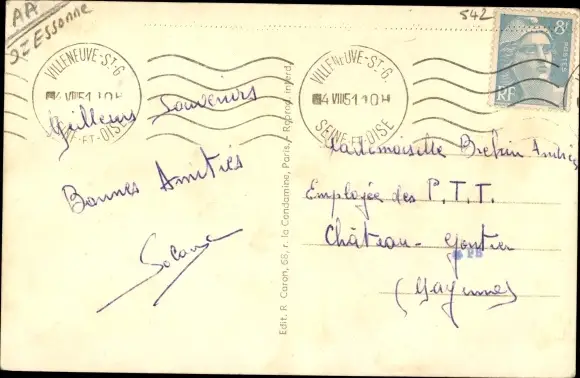 AA
S=Essonne
542
8F
POSTES
RF
VILLENEUVE-ST-G.
4 VIII 51 10H
SEINE-ET-OISE
VILLENEUVE-ST-G.
4 VIII 51 10H
SEINE-ET-OISE
Meilleurs Souvenirs
Bonnes Amitiés
Edit. R Caron, 68, r. la Condamine, Paris. - Reprod. interd.
Mademoiselle Brehin Andrée
Employée des P.T.T.
Château-Gontier
(Mayenne)